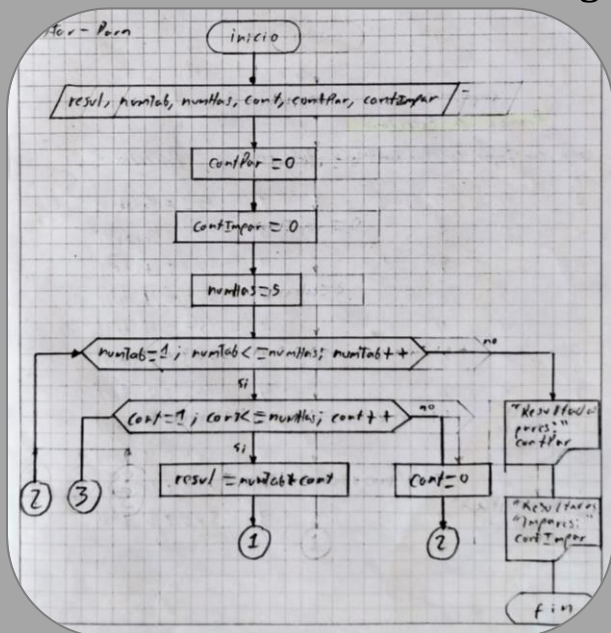 inicio
resul, numTab, numHas, cont, contPar, contImpar
contPar = 0
contImpar = 0
numHas = 5
numTab = 1 ; numTab < = numHas; numTab + +
no
si
cont = 1 ; cont < = numHas; cont + +
no
si
"Resultados
pares:"
contPar
2
3
resul = numTab * cont
cont = 0
1
2
"Resultados
"Impares:"
contImpar
fin